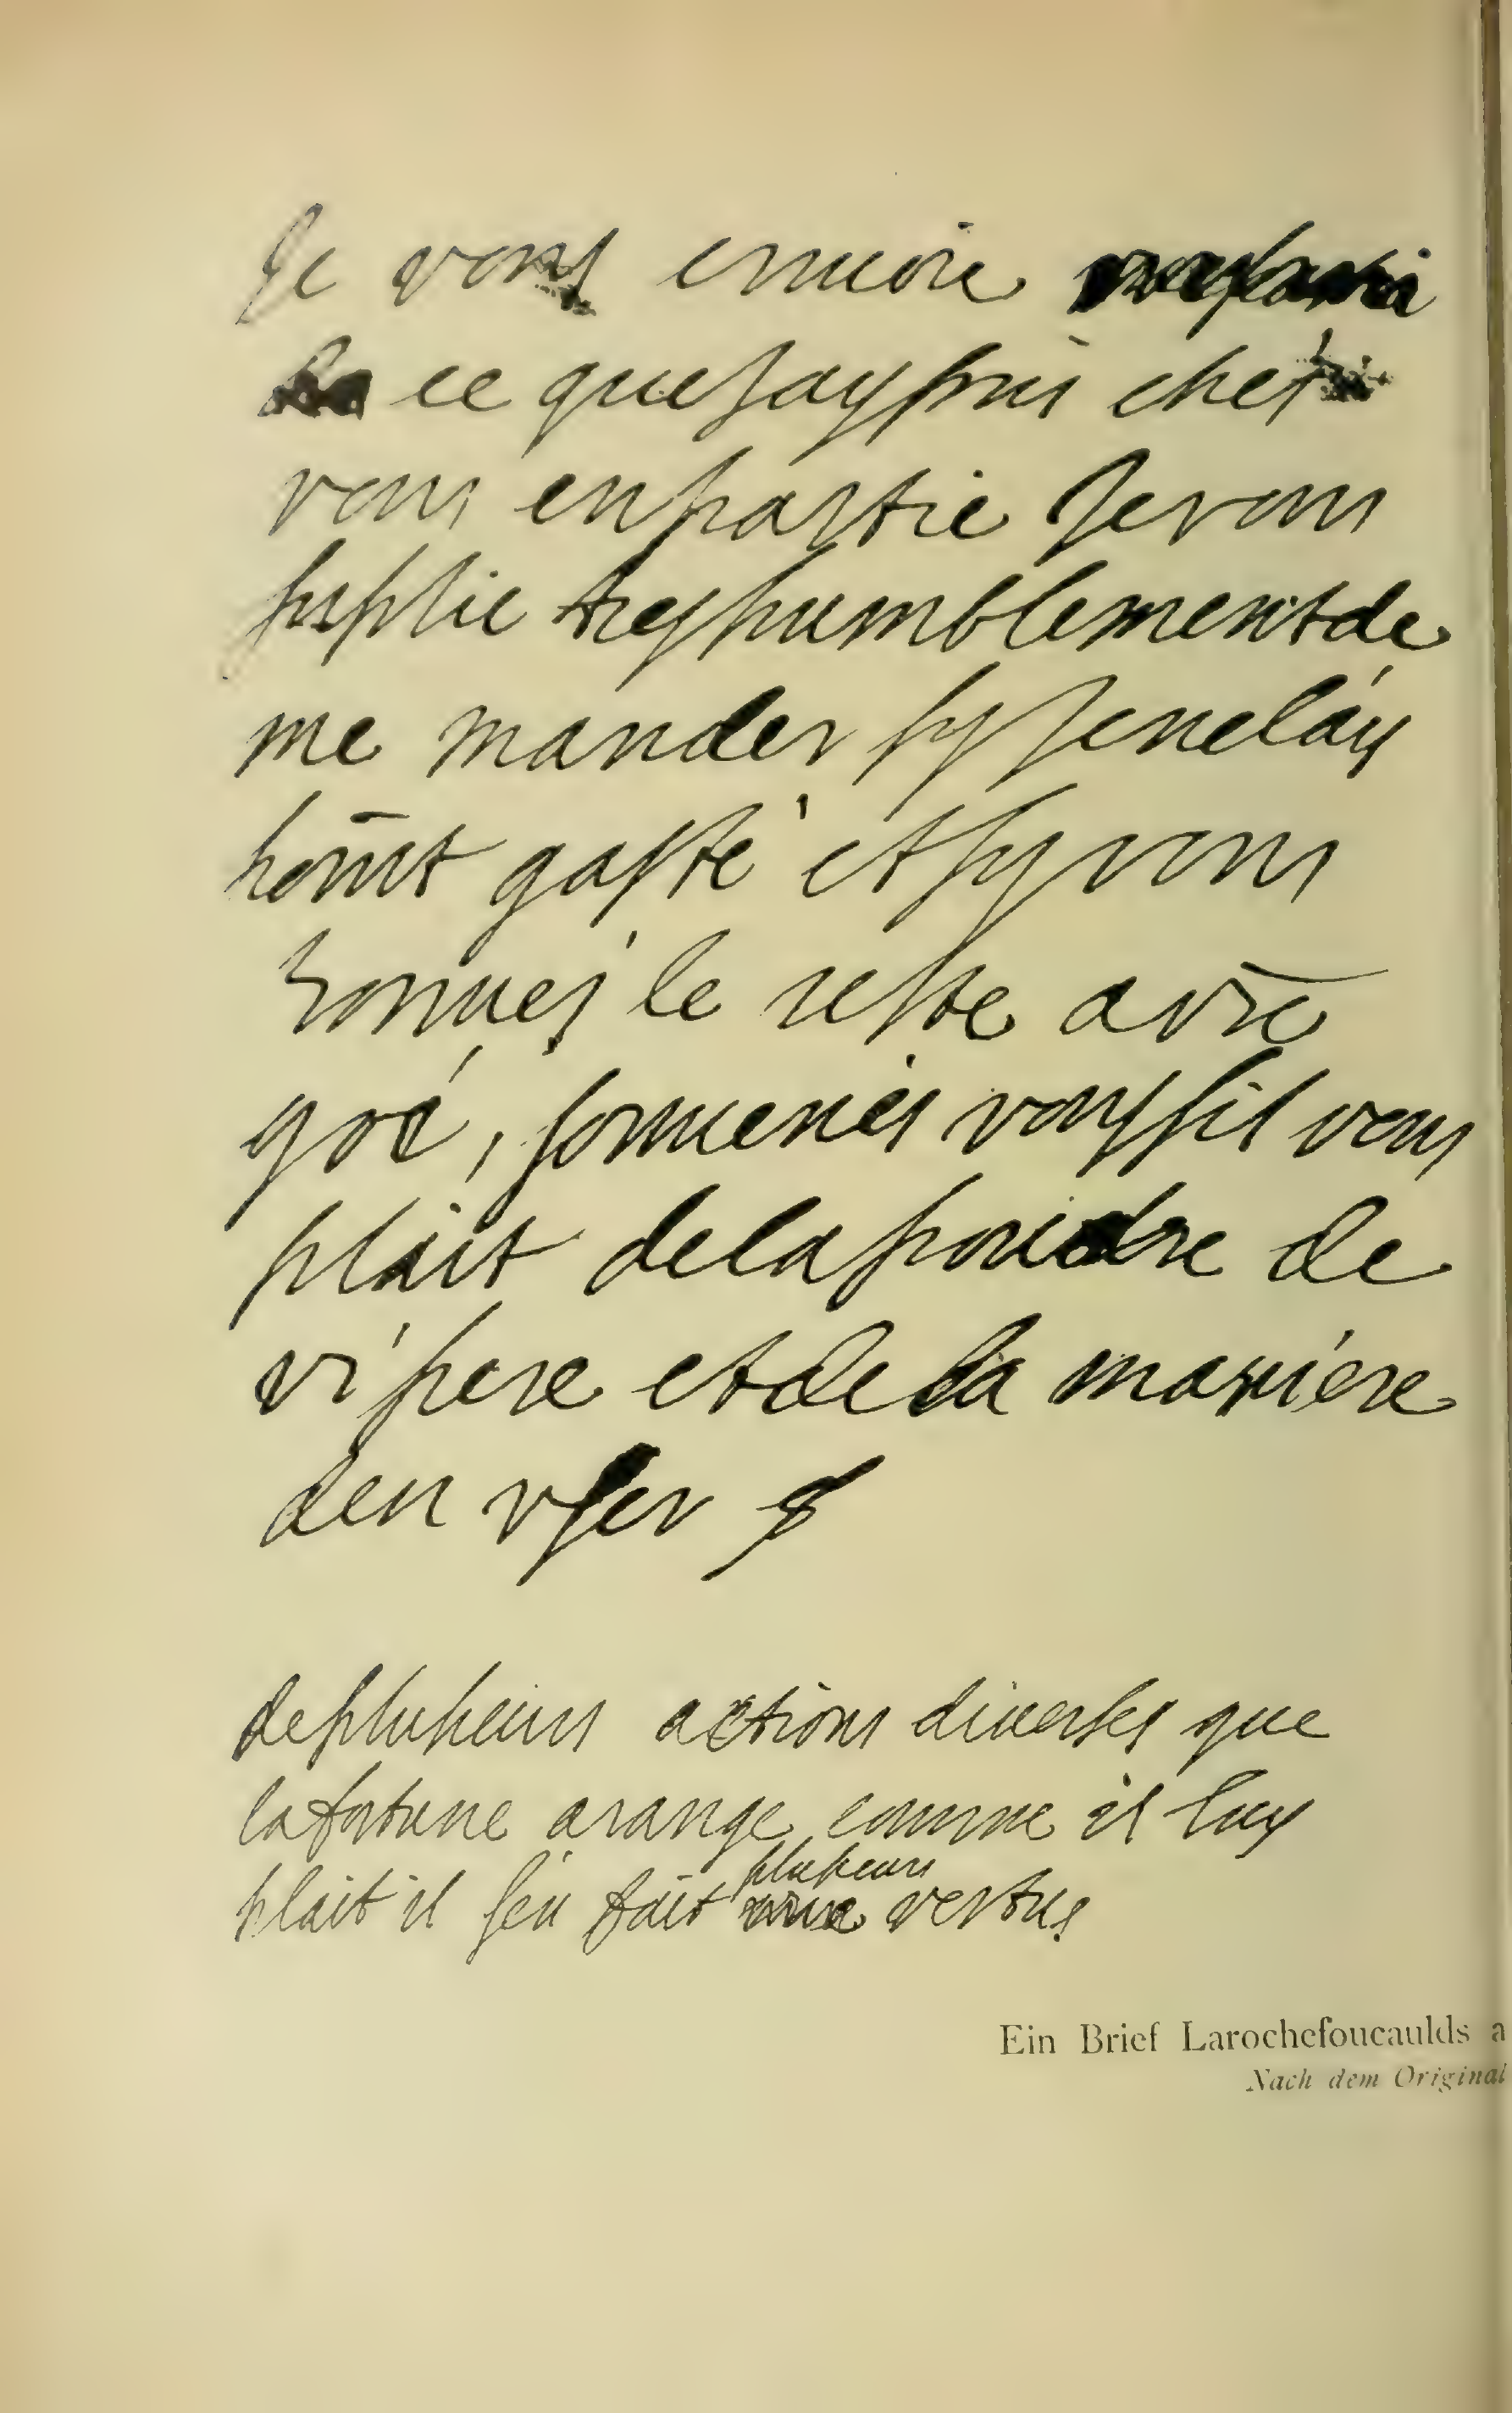 Je vous enuoie
ce que Jay pris chés
vous en partie Je vous
suplie tres humblement de
me mander sy Je ne láy
point gasté et sy vous
trouués le reste a vr̄e
gré, souuenés vous sil vous
plait de la poudre de
vipere et de la maniere
den vser
de plusieurs actions diuerses que
la fortune arange comme il luy
plait il sen fait plusieurs vertus
Ein Brief Larochefoucaulds a
Nach dem Original